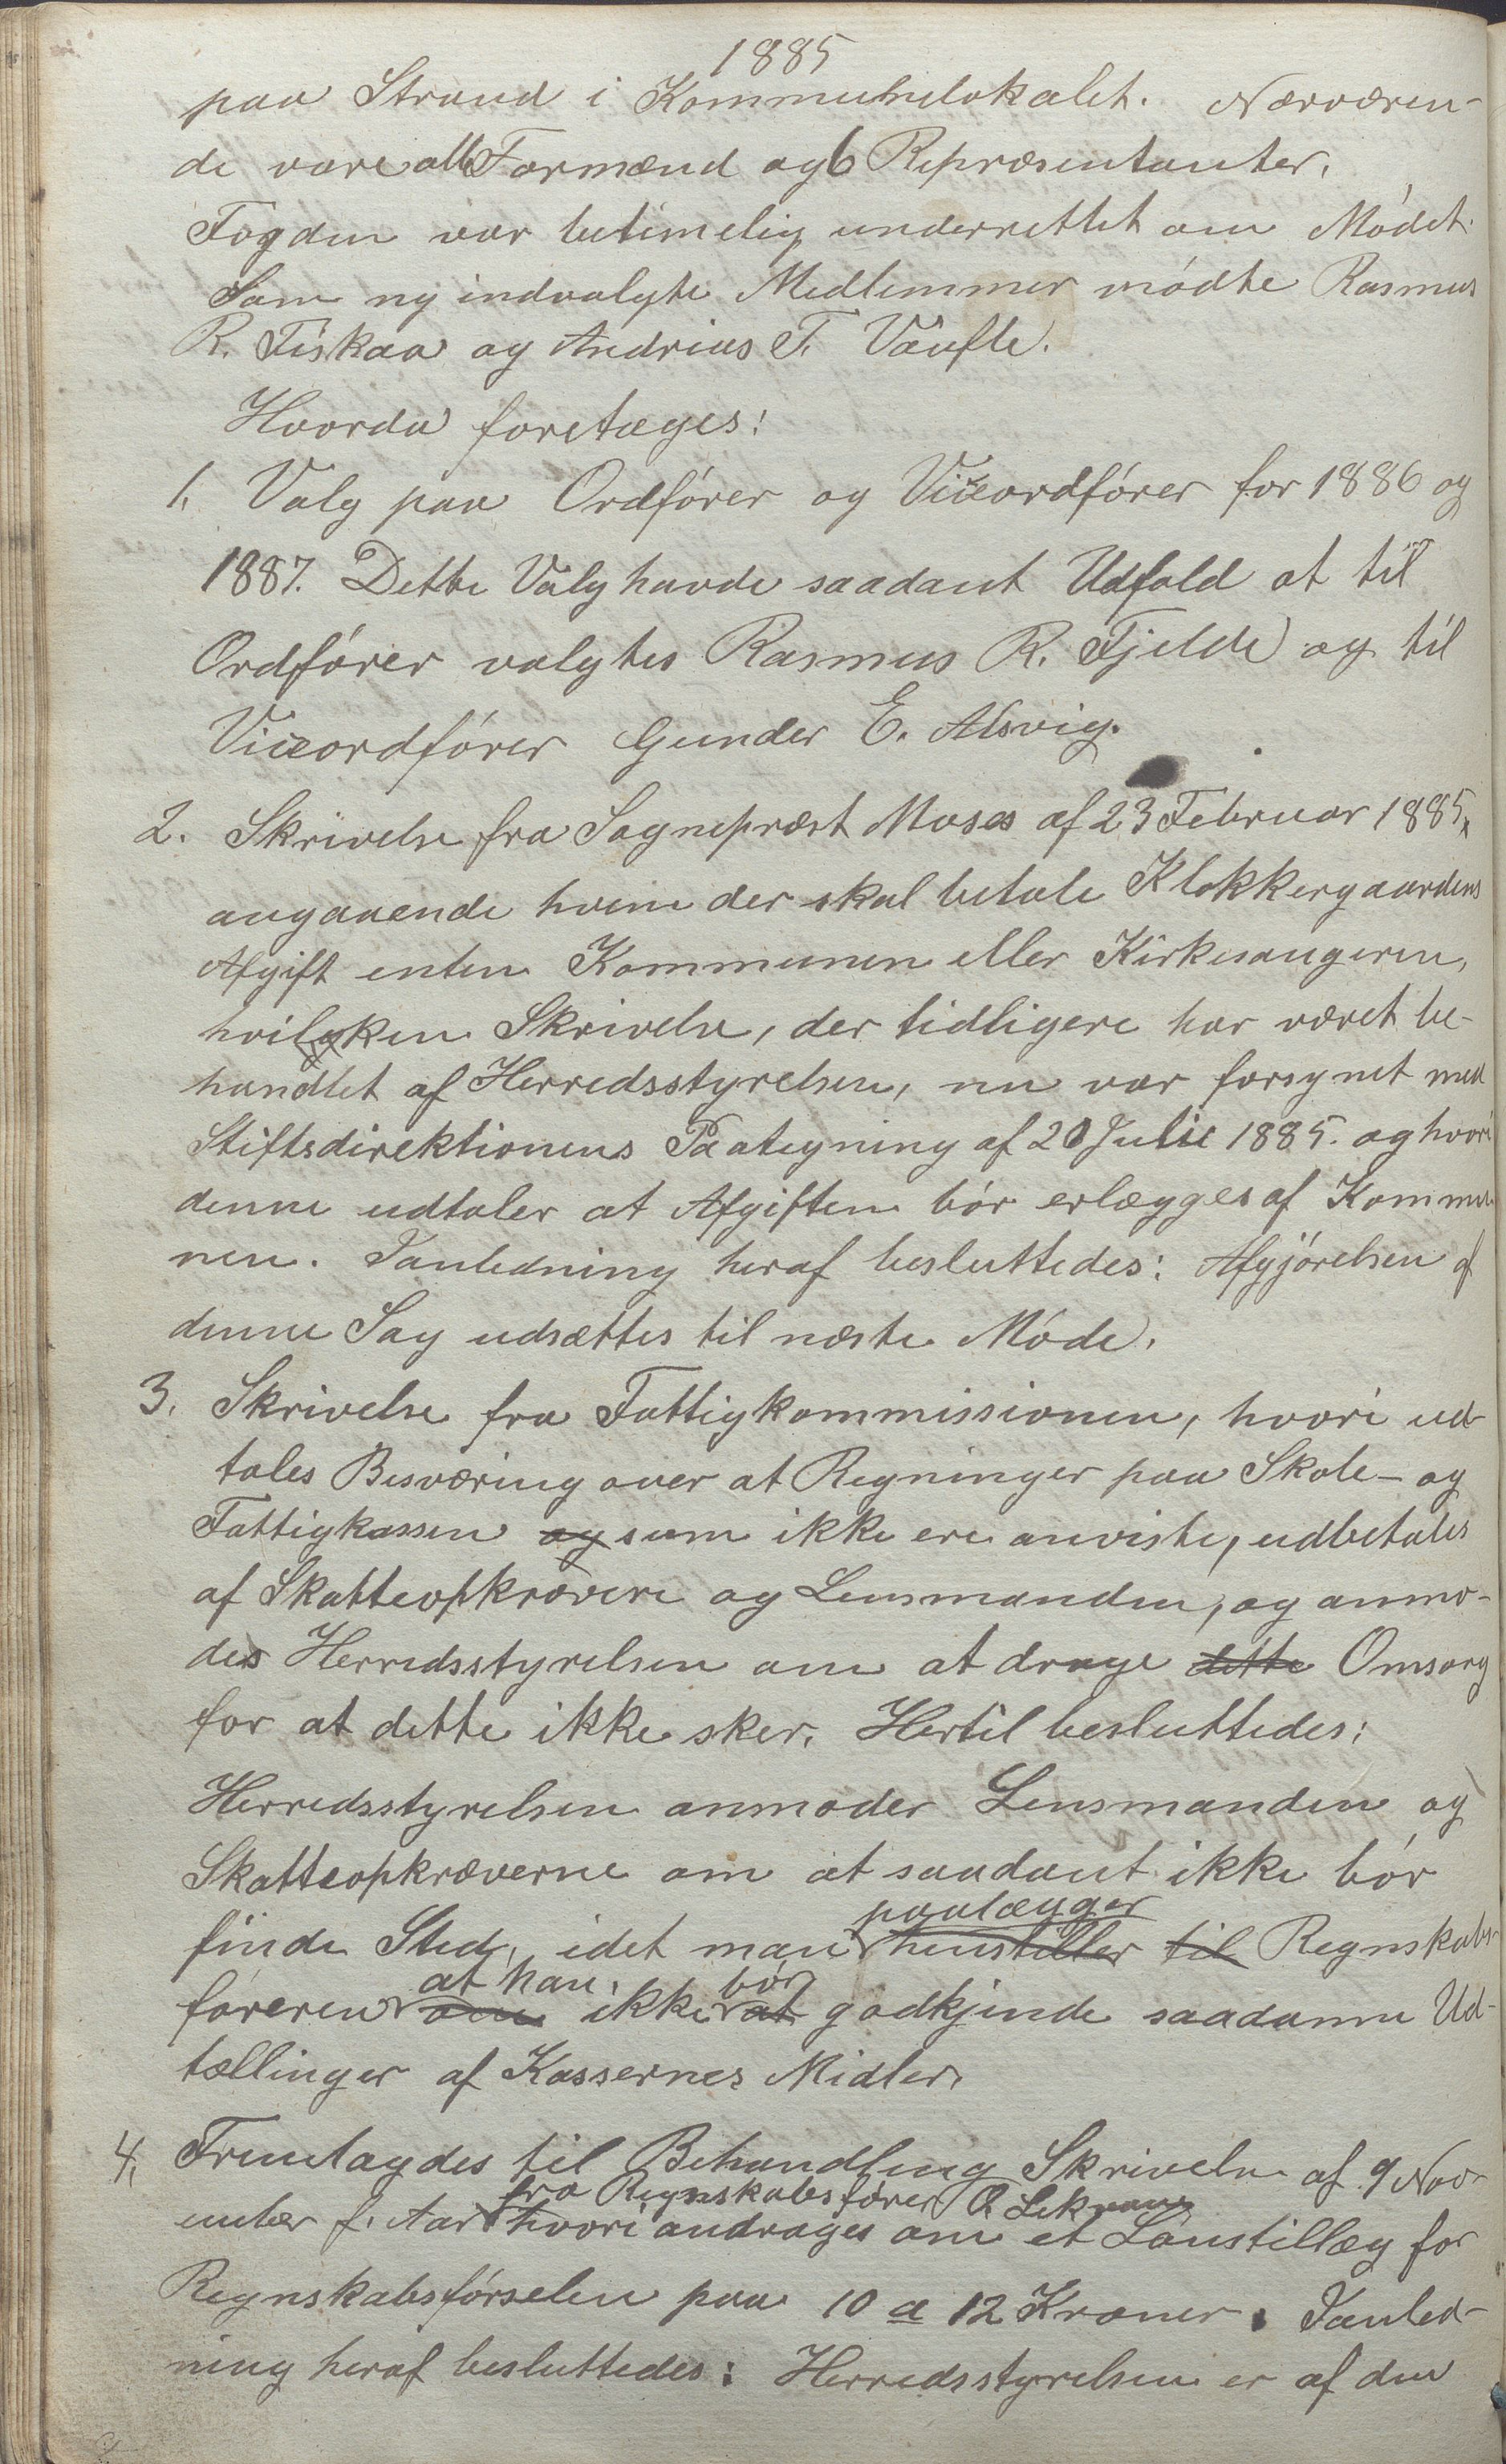 1885
paa Strand i Kommunelokalet. Nærværen-
de vare alle Formænd og 6 Repræsentanter.
Fogden var betimelig underrettet om Mödet.
Som ny indvalgte Medlemmer mödte Rasmus
R. Fiskaa og Andreas T. Vaufle.
Hvorda foretages:
1. Valg paa Ordförer og Viceordförer for 1886 og
1887. Dette Valg havde saadant Udfald at til
Ordförer valgtes Rasmus R. Fjelde og til
Viceordförer Gunder E. Alsvig.
2. Skrivelse fra Sognepræst Moses af 23 Februar 1885,
angaaende hvem der skal betale Klokkergaardens
Afgift enten Kommunen eller Kirkesangeren,
hvilken Skrivelse, der tidligere har været be-
handlet af Herredsstyrelsen, nu var forsynet med
Stiftsdirektionens Paategning af 20 Juli 1885. og hvori
denne udtaler at Afgiften bör erlægges af Kommu-
nen. I anledning heraf besluttedes: Afgjörelsen af
denne Sag udsættes til næste Möde.
3. Skrivelse fra Fattigkommissionen, hvori ud-
tales Besværing over at Regninger paa Skole- og
Fattigkassen og som ikke ere anviste, udbetales
af Skatteopkrævere og Lensmanden, og anmo-
des Herredsstyrelsen om at drage dette Omsorg
for at dette ikke sker. Hertil besluttedes:
Herredsstyrelsen anmoder Lensmanden og
Skatteopkræverne om at saadant ikke bör
paalægger
finde Sted, idet man henstiller til Regnskabs-
at han bör
föreren om ikke at godkjende saadanne Ud-
tællinger af Kassernes Midler.
4. Fremlagdes til Behandling Skrivelse af 9 Nov-
fra Regnskabsförer O. Lekvam
ember f. Aar hvori andrages om et Lönstillæg for
Regnskabsförselen paa 10 a 12 Kroner. I anled-
ning heraf besluttedes: Herredsstyrelsen er af den